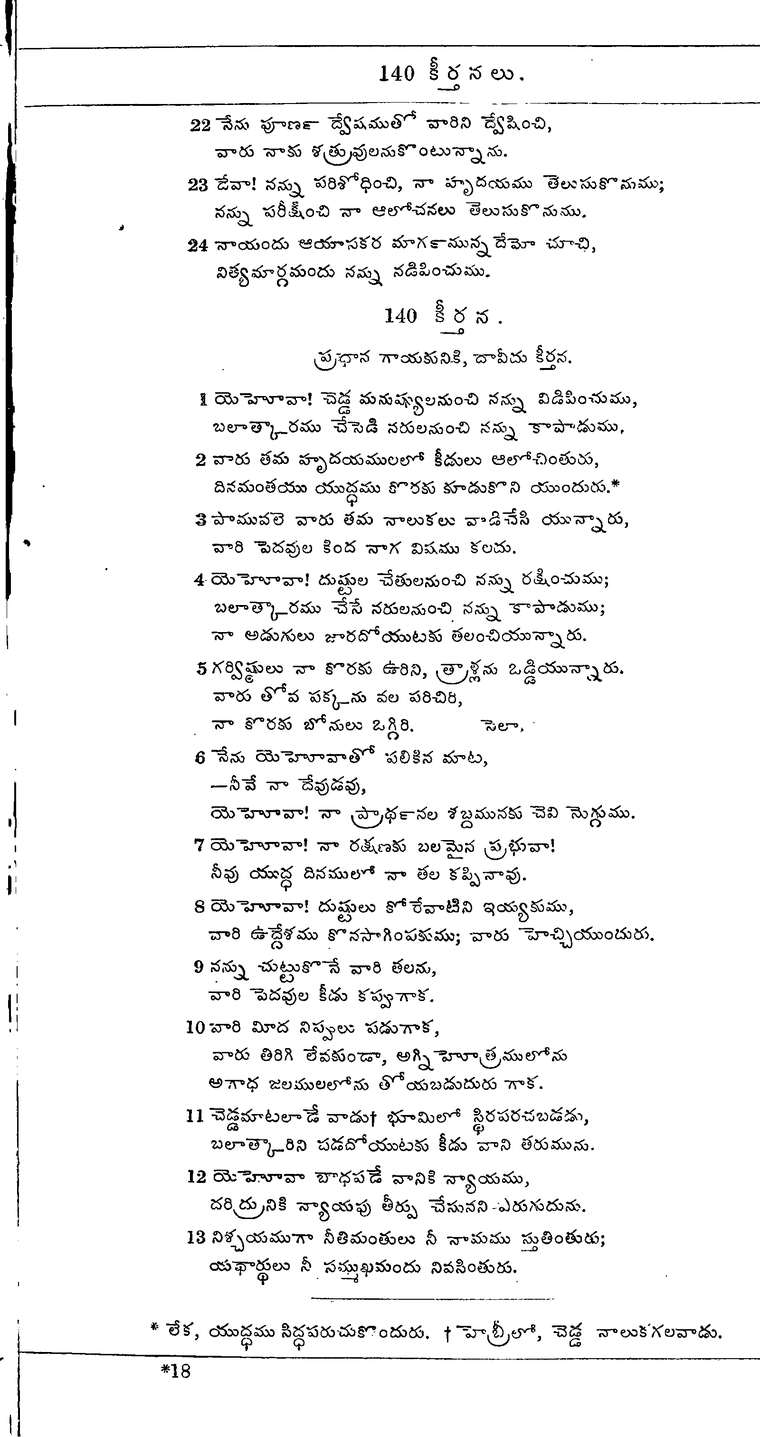 140 కీర్తనలు.
22 నేను పూర్ణ ద్వేషముతో వారిని ద్వేషించి,
వారు నాకు శత్రువులనుకొంటున్నాను.
23 దేవా! నన్ను పరిశోధించి, నా హృదయము తెలుసుకొనుము;
నన్ను పరీక్షించి నా ఆలోచనలు తెలుసుకొనుము.
24 నాయందు ఆయాసకర మార్గమున్నదేమో చూచి,
నిత్యమార్గమందు నన్ను నడిపించుము.
140 కీర్తన.
ప్రధాన గాయకునికి, దావీదు కీర్తన.
1 యెహెూవా! చెడ్డ మనుష్యులనుంచి నన్ను విడిపించుము,
బలాత్కారము చేసెడి నరులనుంచి నన్ను కాపాడుము,
2 వారు తమ హృదయములలో కీడులు ఆలోచింతురు,
దినమంతయు యుద్ధము కొరకు కూడుకొని యుందురు.*
3 పామువలె వారు తమ నాలుకలు వాడిచేసి యున్నారు,
వారి పెదవుల కింద నాగ విషము కలదు.
4 యెహెూవా! దుష్టుల చేతులనుంచి నన్ను రక్షించుము;
బలాత్కారము చేసే నరులనుంచి నన్ను కాపాడుము;
నా అడుగులు జారదోయుటకు తలంచియున్నారు.
5 గర్విష్ఠులు నా కొరకు ఉరిని, త్రాళ్లను ఒడ్డియున్నారు.
వారు తోవ పక్కను వల పరిచిరి,
నా కొరకు బోనులు ఒగ్గిరి. సెలా,
6 నేను యెహెూవాతో పలికిన మాట,
—నీవే నా దేవుడవు,
యెహెూవా! నా ప్రార్థనల శబ్దమునకు చెవి నెుగ్గుము.
7 యెహెూవా! నా రక్షణకు బలమైన ప్రభువా!
నీవు యుద్ధ దినములో నా తల కప్పినావు.
8 యెహెూవా! దుష్టులు కోరేవాటిని ఇయ్యకుము,
వారి ఉద్దేశము కొనసాగింపకుము; వారు హెచ్చియుందురు.
9 నన్ను చుట్టుకొనే వారి తలను,
వారి పెదవుల కీడు కప్పుగాక.
10 వారి మీద నిప్పులు పడుగాక,
వారు తిరిగి లేవకుండా, అగ్నిహెూత్రములోను
అగాధ జలములలోను తోయబడుదురు గాక.
11 చెడ్డమాటలాడే వాడు† భూమిలో స్థిరపరచబడడు,
బలాత్కారిని పడదోయుటకు కీడు వాని తరుమును.
12 యెహెూవా బాధపడే వానికి న్యాయము,
దరిద్రునికి న్యాయపు తీర్పు చేసునని ఎరుగుదును.
13 నిశ్చయముగా నీతిమంతులు నీ నామము స్తుతింతురు;
యథార్థులు నీ సమ్ముఖమందు నివసింతురు.
* లేక, యుద్ధము సిద్ధపరుచుకొందురు. † హెబ్రీలో, చెడ్డ నాలుకగలవాడు.
*18